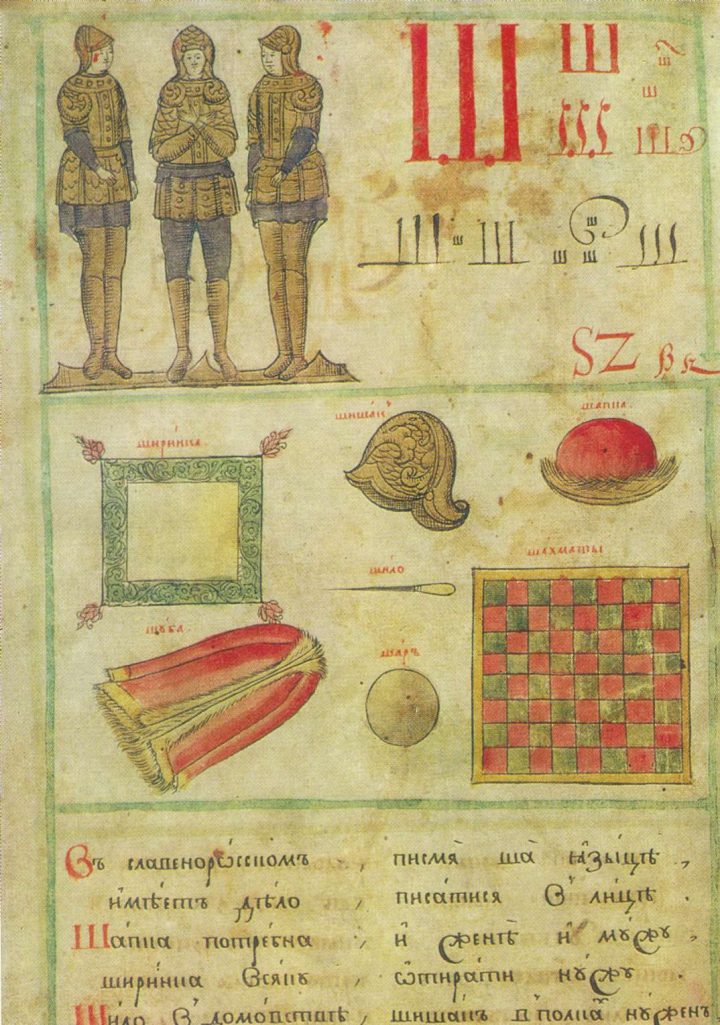 Ш Ш ш
ш ш
Ш Ш
Ш ш Ш ш Ш
ш ш
SZ
ширинка шишакъ шапка
шило шахматы
шꙋба шаръ
Въ славенорѡсскомъ , писмѧ ша ꙗзыцѣ ,
имѣетъ дѣло , писатисѧ в лицѣ .
Шапка потребна , и женѣ и мꙋжꙋ ,
ширинка всѧкꙋ ѡтирати нꙋжꙋ .
Шило в домовствѣ , шишакъ в полкахъ нꙋженъ